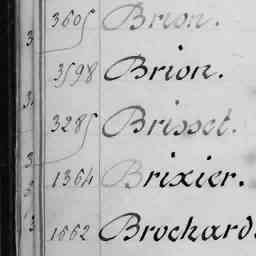 3605 Brion.
3598 Brion.
3285 Brisset.
1364 Brixier.
1662 Brochard.